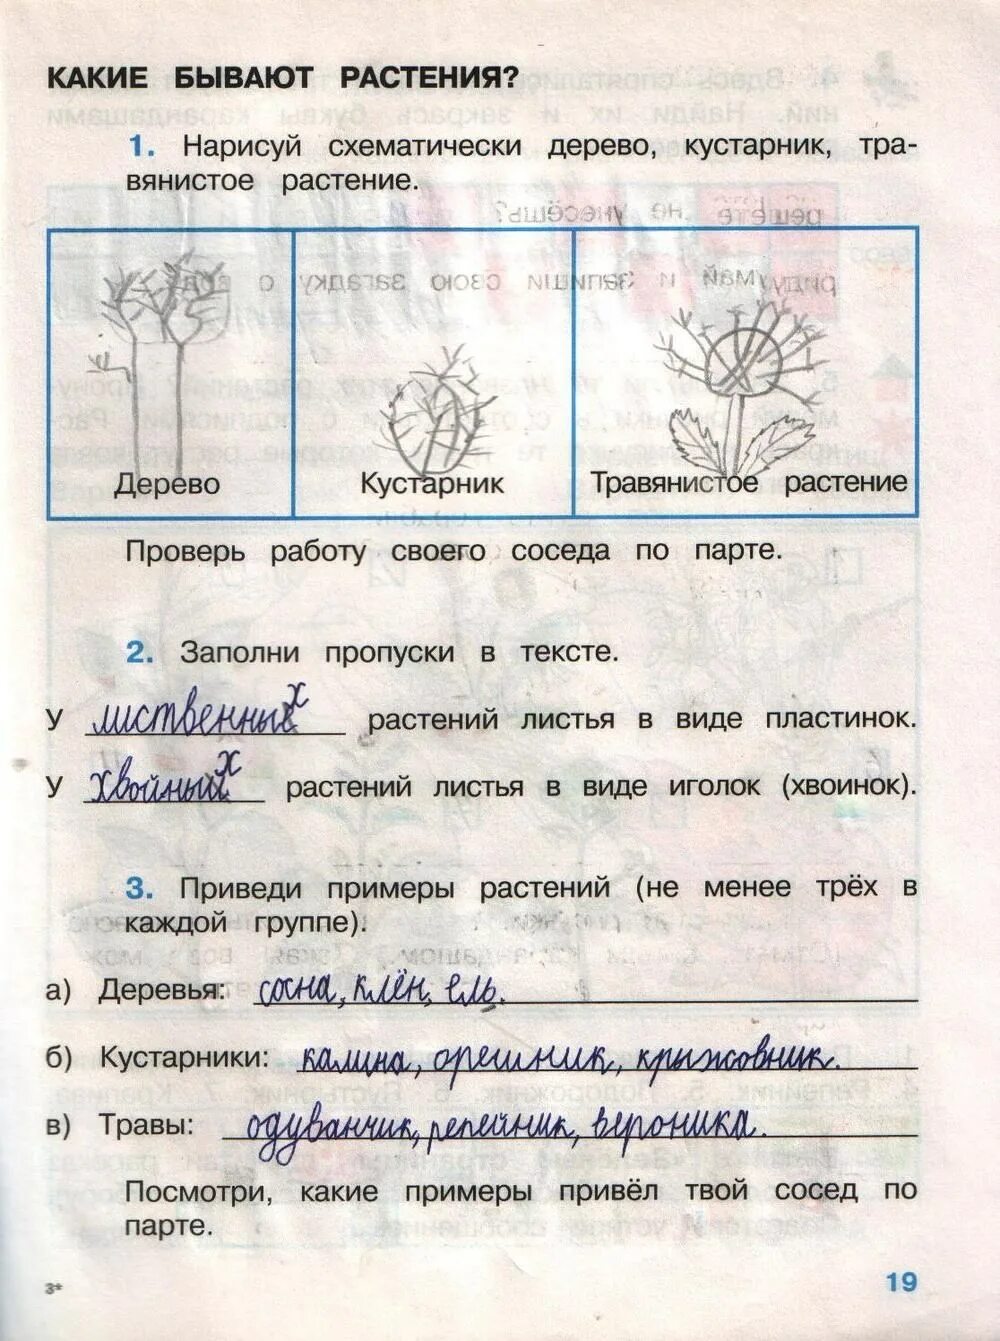 КАКИЕ БЫВАЮТ РАСТЕНИЯ?
1. Нарисуй схематически дерево, кустарник, тра-
вянистое растение.
Дерево Кустарник Травянистое растение
Проверь работу своего соседа по парте.
2. Заполни пропуски в тексте.
У лиственных растений листья в виде пластинок.
У хвойных растений листья в виде иголок (хвоинок).
3. Приведи примеры растений (не менее трёх в
каждой группе).
а) Деревья: сосна, клён, ель.
б) Кустарники: калина, орешник, крыжовник.
в) Травы: одуванчик, репейник, вероника.
Посмотри, какие примеры привёл твой сосед по
парте.
3* 19